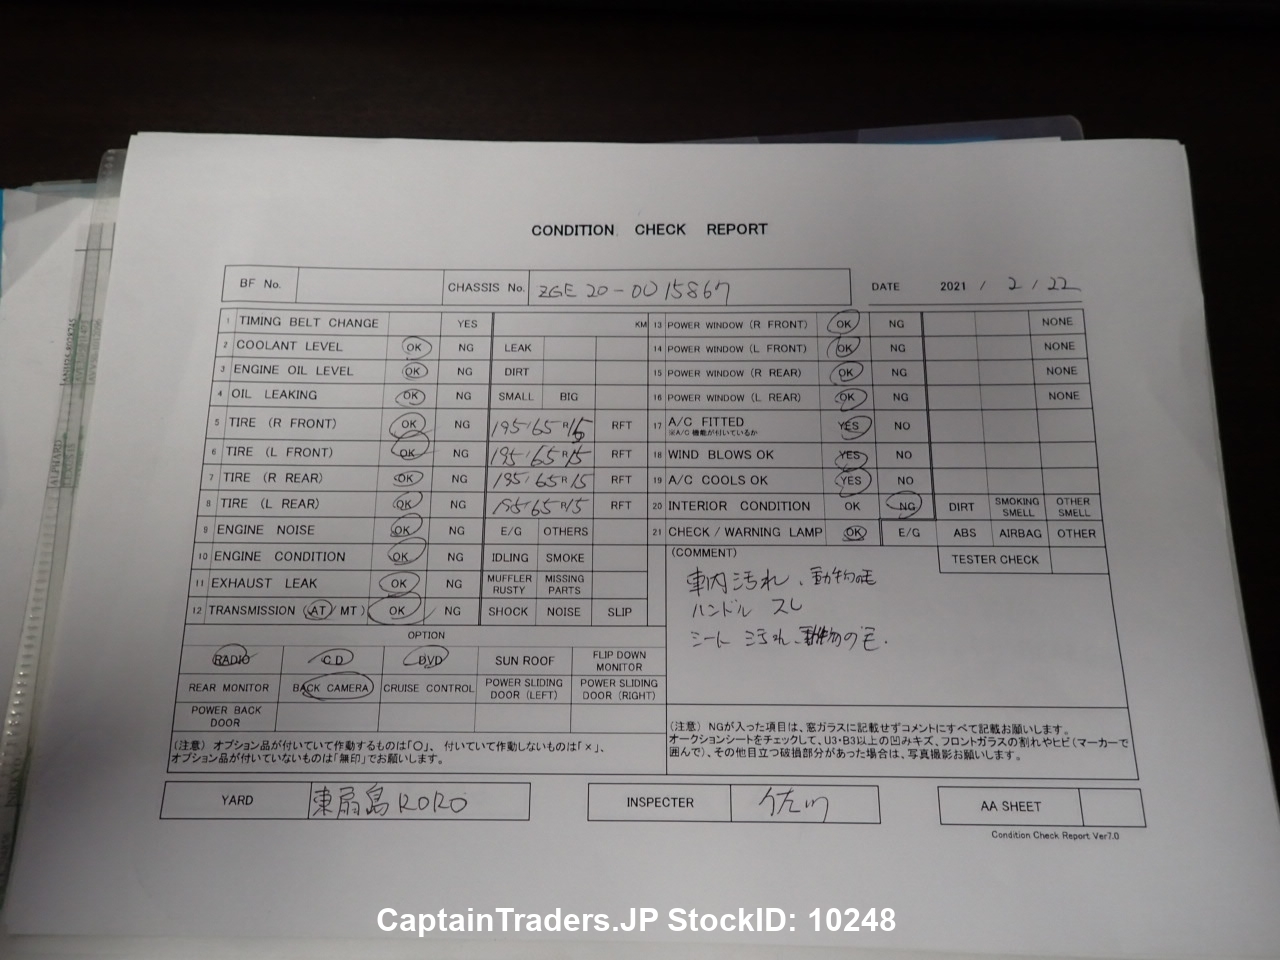 CONDITION CHECK REPORT
BF No. CHASSIS No. ZGE20-0015867 DATE 2021 / 2 / 22
1 TIMING BELT CHANGE YES KM
2 COOLANT LEVEL OK NG LEAK
3 ENGINE OIL LEVEL OK NG DIRT
4 OIL LEAKING OK NG SMALL BIG
5 TIRE (R FRONT) OK NG 195/65R15 RFT
6 TIRE (L FRONT) OK NG 195/65R15 RFT
7 TIRE (R REAR) OK NG 195/65R15 RFT
8 TIRE (L REAR) OK NG 195/65R15 RFT
9 ENGINE NOISE OK NG E/G OTHERS
10 ENGINE CONDITION OK NG IDLING SMOKE
11 EXHAUST LEAK OK NG MUFFLER RUSTY MISSING PARTS
12 TRANSMISSION (AT/ MT) OK NG SHOCK NOISE SLIP
13 POWER WINDOW (R FRONT) OK NG NONE
14 POWER WINDOW (L FRONT) OK NG NONE
15 POWER WINDOW (R REAR) OK NG NONE
16 POWER WINDOW (L REAR) OK NG NONE
17 A/C FITTED YES NO
※A/C 機能が付いているか
18 WIND BLOWS OK YES NO
19 A/C COOLS OK YES NO
20 INTERIOR CONDITION OK NG DIRT SMOKING SMELL OTHER SMELL
21 CHECK / WARNING LAMP OK E/G ABS AIRBAG OTHER
(COMMENT) TESTER CHECK
車内汚れ、動物の毛
ハンドル スレ
シート 汚れ、動物の毛.
OPTION
RADIO CD DVD SUN ROOF FLIP DOWN MONITOR
REAR MONITOR BACK CAMERA CRUISE CONTROL POWER SLIDING DOOR (LEFT) POWER SLIDING DOOR (RIGHT)
POWER BACK DOOR
(注意) オプション品が付いていて作動するものは「〇」、付いていて作動しないものは「×」、
オプション品が付いていないものは「無印」でお願いします。
(注意) NGが入った項目は、窓ガラスに記載せずコメントにすべて記載お願いします。
オークションシートをチェックして、U3・B3以上の凹みキズ、フロントガラスの割れやヒビ(マーカーで
囲んで)、その他目立つ破損部分があった場合は、写真撮影お願いします。
YARD 東扇島 RORO INSPECTER 佐川 AA SHEET
Condition Check Report Ver7.0
CaptainTraders.JP StockID: 10248